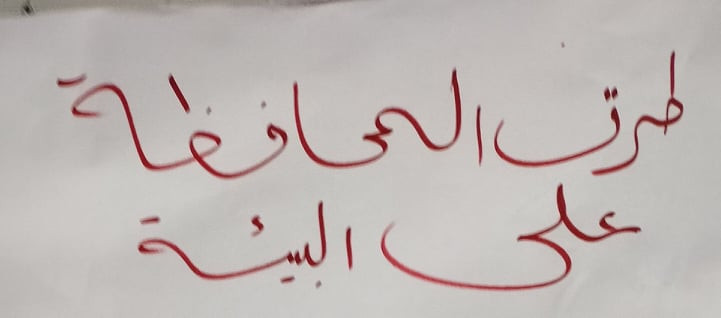 طرق المحافظة
على البيئة